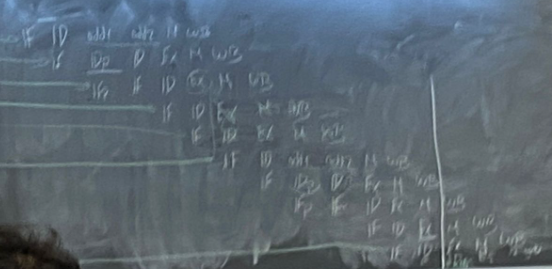 IF ID add1 add2 M WB
IF IDp D Ex M WB
IFp IF ID Ex M WB
IF ID Ex M WB
IF ID Ex M WB
IF ID add1 add2 M WB
IF IDp ID Ex M WB
IFp IF ID Ex M WB
IF ID Ex M WB
IF ID Ex M WB